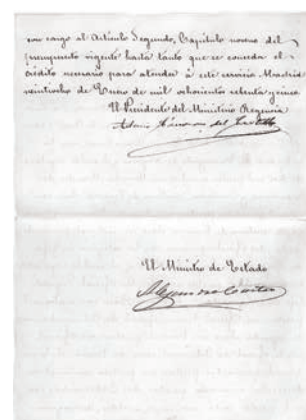 con cargo al Artículo Segundo, Capítulo noveno del
presupuesto vigente hasta tanto que se conceda el
crédito necesario para atender á este servicio Madrid
veintiocho de Enero de mil ochocientos setenta y cinco
El Presidente del Ministerio Regencia
Antonio Cánovas del Castillo
El Ministro de Estado
Alejandro Castro